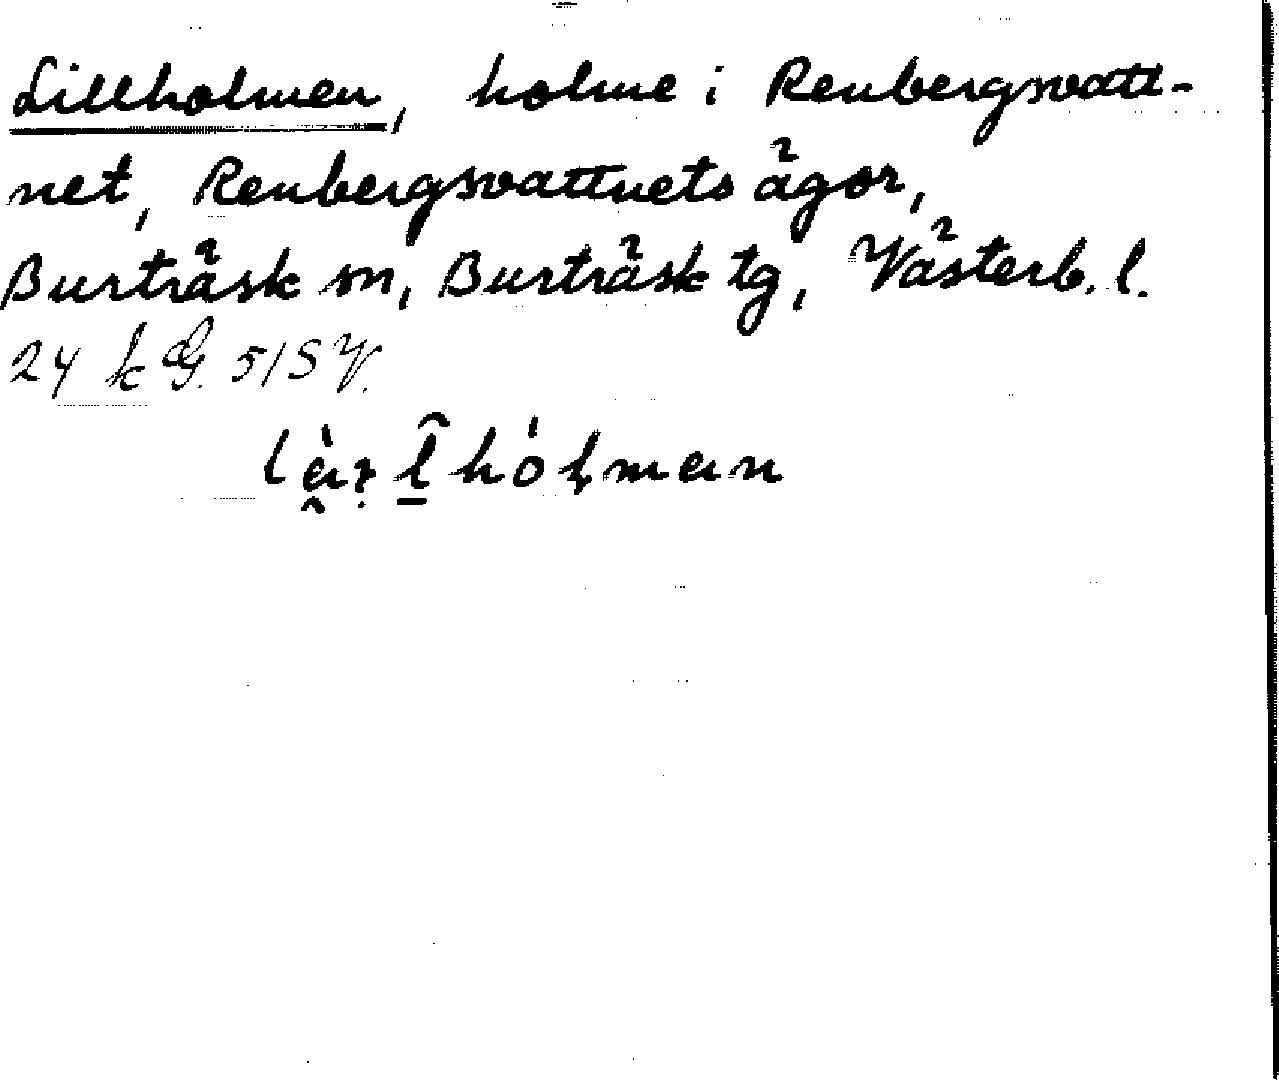 Lillholmen, holme i Renbergsvatt-
net, Renbergsvattnets ägor,
Burträsk sn, Burträsk tg, Västerb. l.
24 k 51 SV.